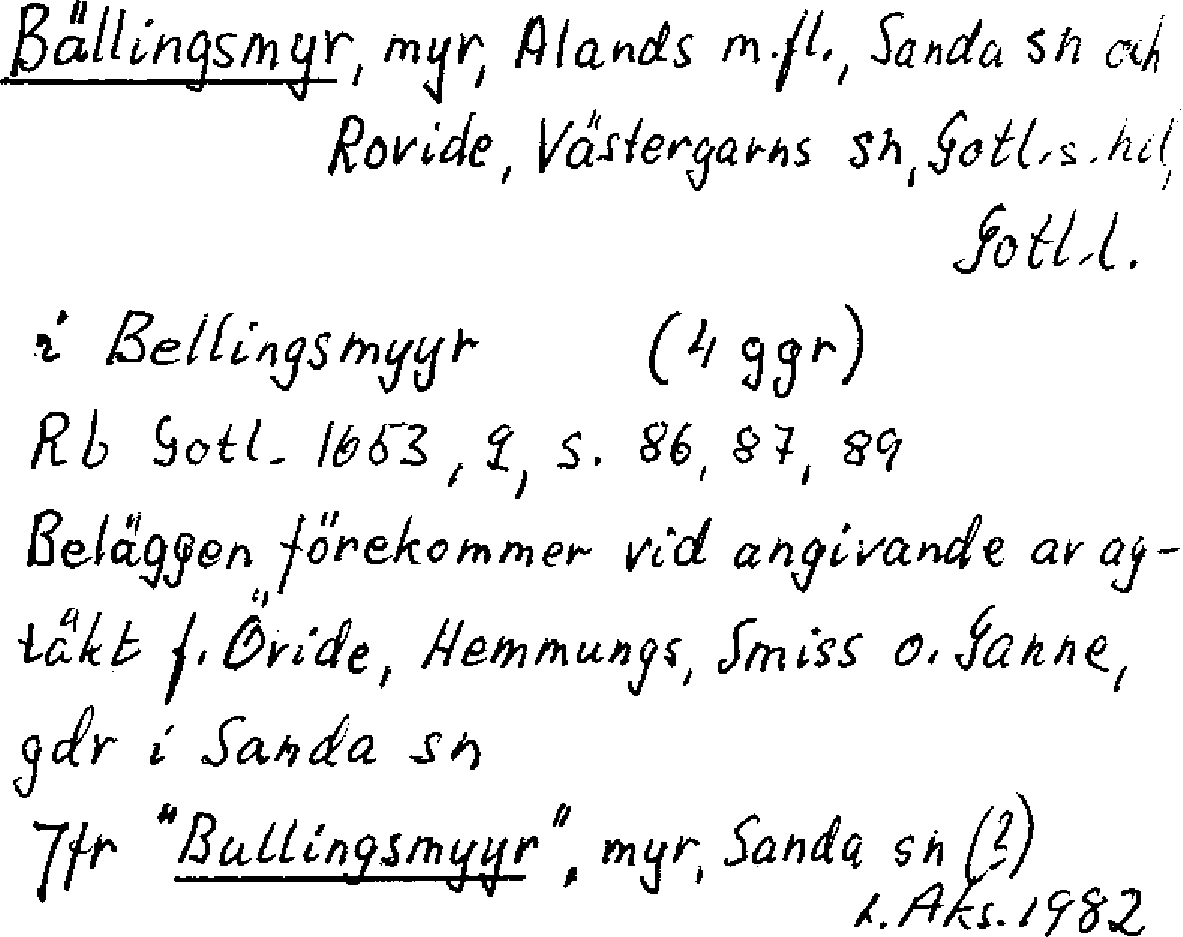 Bällingsmyr, myr, Alands m.fl., Sanda sn och
Rovide, Västergarns sn, Gotl.s.hd,
Gotl.l.
i Bellingsmyyr (4 ggr)
Rb Gotl. 1653, 2, s. 86, 87, 89
Beläggen förekommer vid angivande av ag-
täkt f. Övide, Hemmungs, Smiss o. Ganne,
gdr i Sanda sn
Jfr "Bullingsmyyr", myr, Sanda sn (?)
L. Aks. 1982